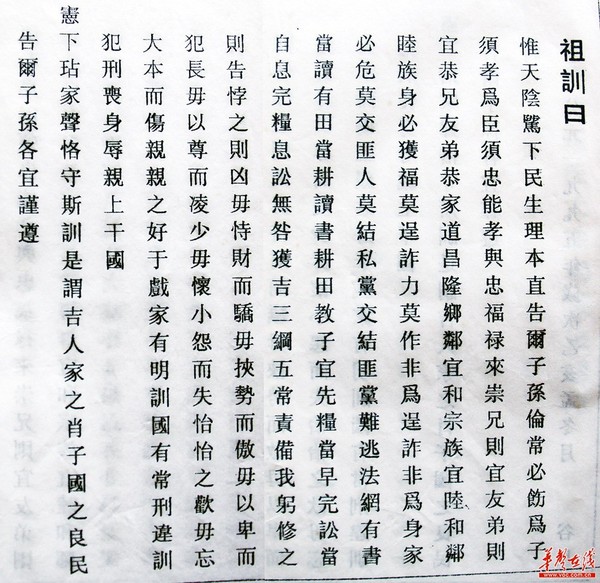 祖訓曰
惟天陰騭下民生理本直告爾子孫倫常必飭爲子
須孝爲臣須忠能孝與忠福禄來崇兄則宜友弟則
宜恭兄友弟恭家道昌隆鄉鄰宜和宗族宜睦和鄰
睦族身必獲福莫逞詐力莫作非爲逞詐非爲身家
必危莫交匪人莫結私黨交結匪黨難逃法網有書
當讀有田當耕讀書耕田教子宜先糧當早完訟當
自息完糧息訟無咎獲吉三綱五常責備我躬修之
則告悖之則凶毋恃財而驕毋挾勢而傲毋以卑而
犯長毋以尊而凌少毋懷小怨而失怡怡之歡毋忘
大本而傷親親之好于戲家有明訓國有常刑違訓
犯刑喪身辱親上干國
憲下玷家聲恪守斯訓是謂吉人家之肖子國之良民
告爾子孫各宜謹遵
華聲在线
www.voc.com.cn